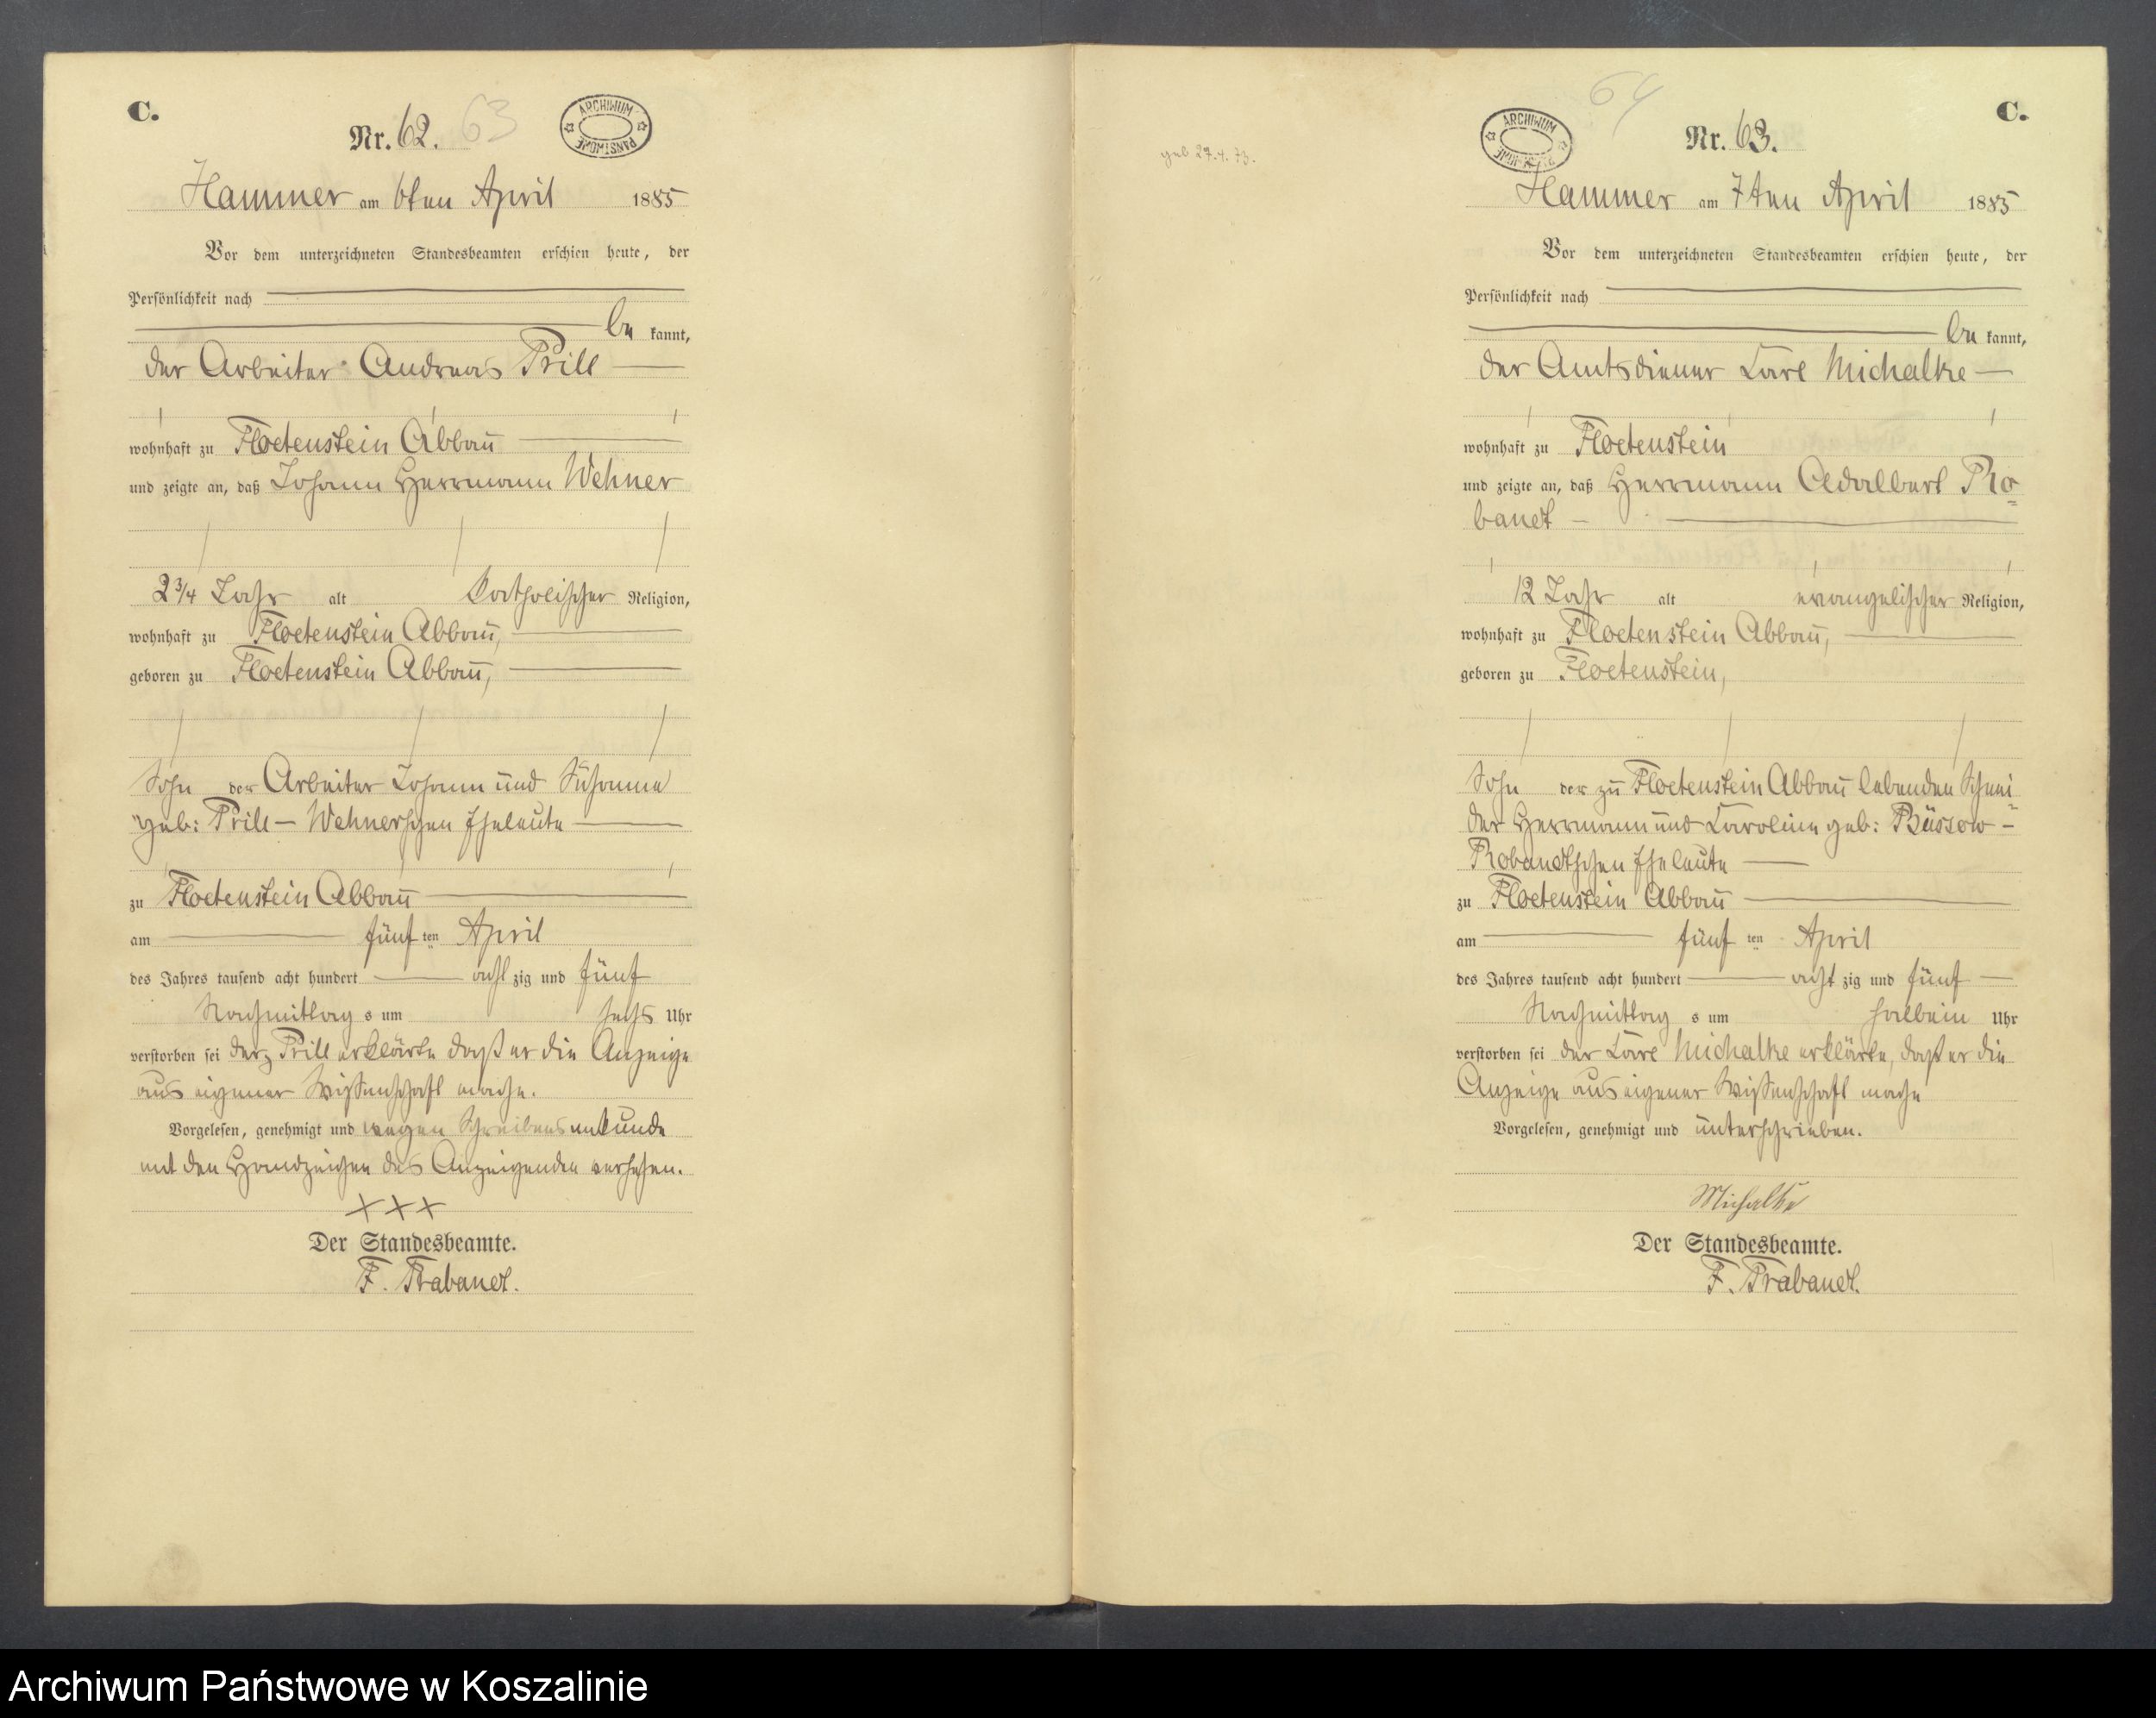 C.
Nr. 62. 63
ARCHIWUM PAŃSTWOWE
Hammer am 6ten April 1885
Vor dem unterzeichneten Standesbeamten erschien heute, der
Persönlichkeit nach
be kannt,
der Arbeiter Andreas Prill
wohnhaft zu Floetenstein Abbau
und zeigte an, daß Johann Herrmann Wehner
2 3/4 Jahr alt katholischer Religion,
wohnhaft zu Floetenstein Abbau,
geboren zu Floetenstein Abbau,
Sohn der Arbeiter Johann und Susanna
geb: Prill – Wehnerschen Eheleute
zu Floetenstein Abbau
am fünf ten April
des Jahres tausend acht hundert acht zig und fünf
Nachmittag s um sechs Uhr
verstorben sei der Prill erklärte daß er die Anzeige
aus eigener Wissenschaft mache.
Vorgelesen, genehmigt und wegen Schreibensunkunde
mit den Handzeichen des Anzeigenden versehen.
XXX
Der Standesbeamte.
F. Prabandt.
geb 27.4.73.
64
C.
ARCHIWUM PAŃSTWOWE
Nr. 63.
Hammer am 7ten April 1885
Vor dem unterzeichneten Standesbeamten erschien heute, der
Persönlichkeit nach
be kannt,
der Amtsdiener Carl Michalke
wohnhaft zu Floetenstein
und zeigte an, daß Herrmann Adalbert Ro=
bandt
12 Jahr alt evangelischer Religion,
wohnhaft zu Floetenstein Abbau,
geboren zu Floetenstein,
Sohn der zu Floetenstein Abbau lebenden Schnei-
der Herrmann und Caroline geb: Büssow –
Robandtschen Eheleute
zu Floetenstein Abbau
am fünf ten April
des Jahres tausend acht hundert acht zig und fünf
Nachmittag s um halbein Uhr
verstorben sei der Carl Michalke erklärte, daß er die
Anzeige aus eigener Wissenschaft mache
Vorgelesen, genehmigt und unterschrieben.
Michalke
Der Standesbeamte.
F. Prabandt.
Archiwum Państwowe w Koszalinie